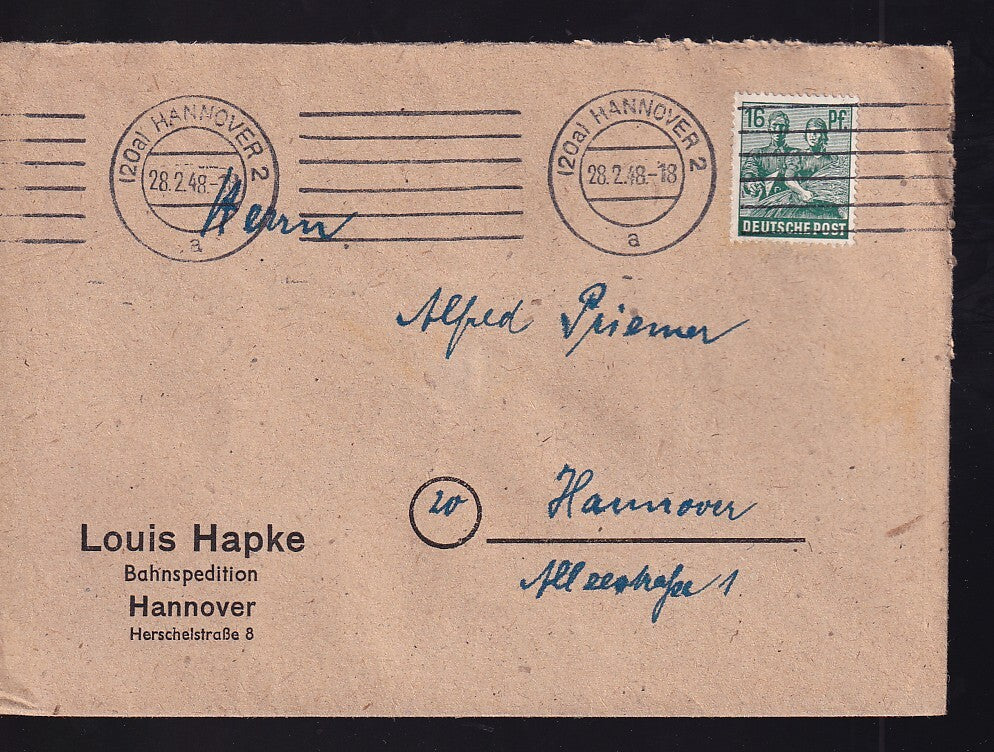 (20a) HANNOVER 2
28.2.48.-1
a
(20a) HANNOVER 2
28.2.48.-18
a
16 Pf.
DEUTSCHE POST
Herrn
Alfred Priemer
20 Hannover
Alleestraße 1
Louis Hapke
Bahnspedition
Hannover
Herschelstraße 8